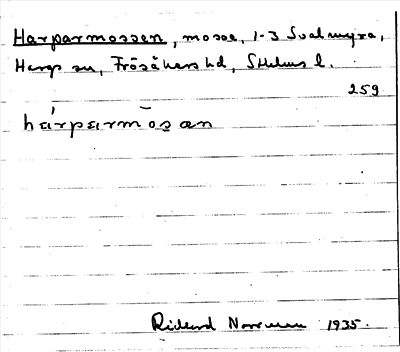 Harparmossen, mosse, 1-3 Svalmyra,
Hargs sn, Frösåkers hd, Sthlms l.
259
hárparmōsan
Rickard Norrman 1935.